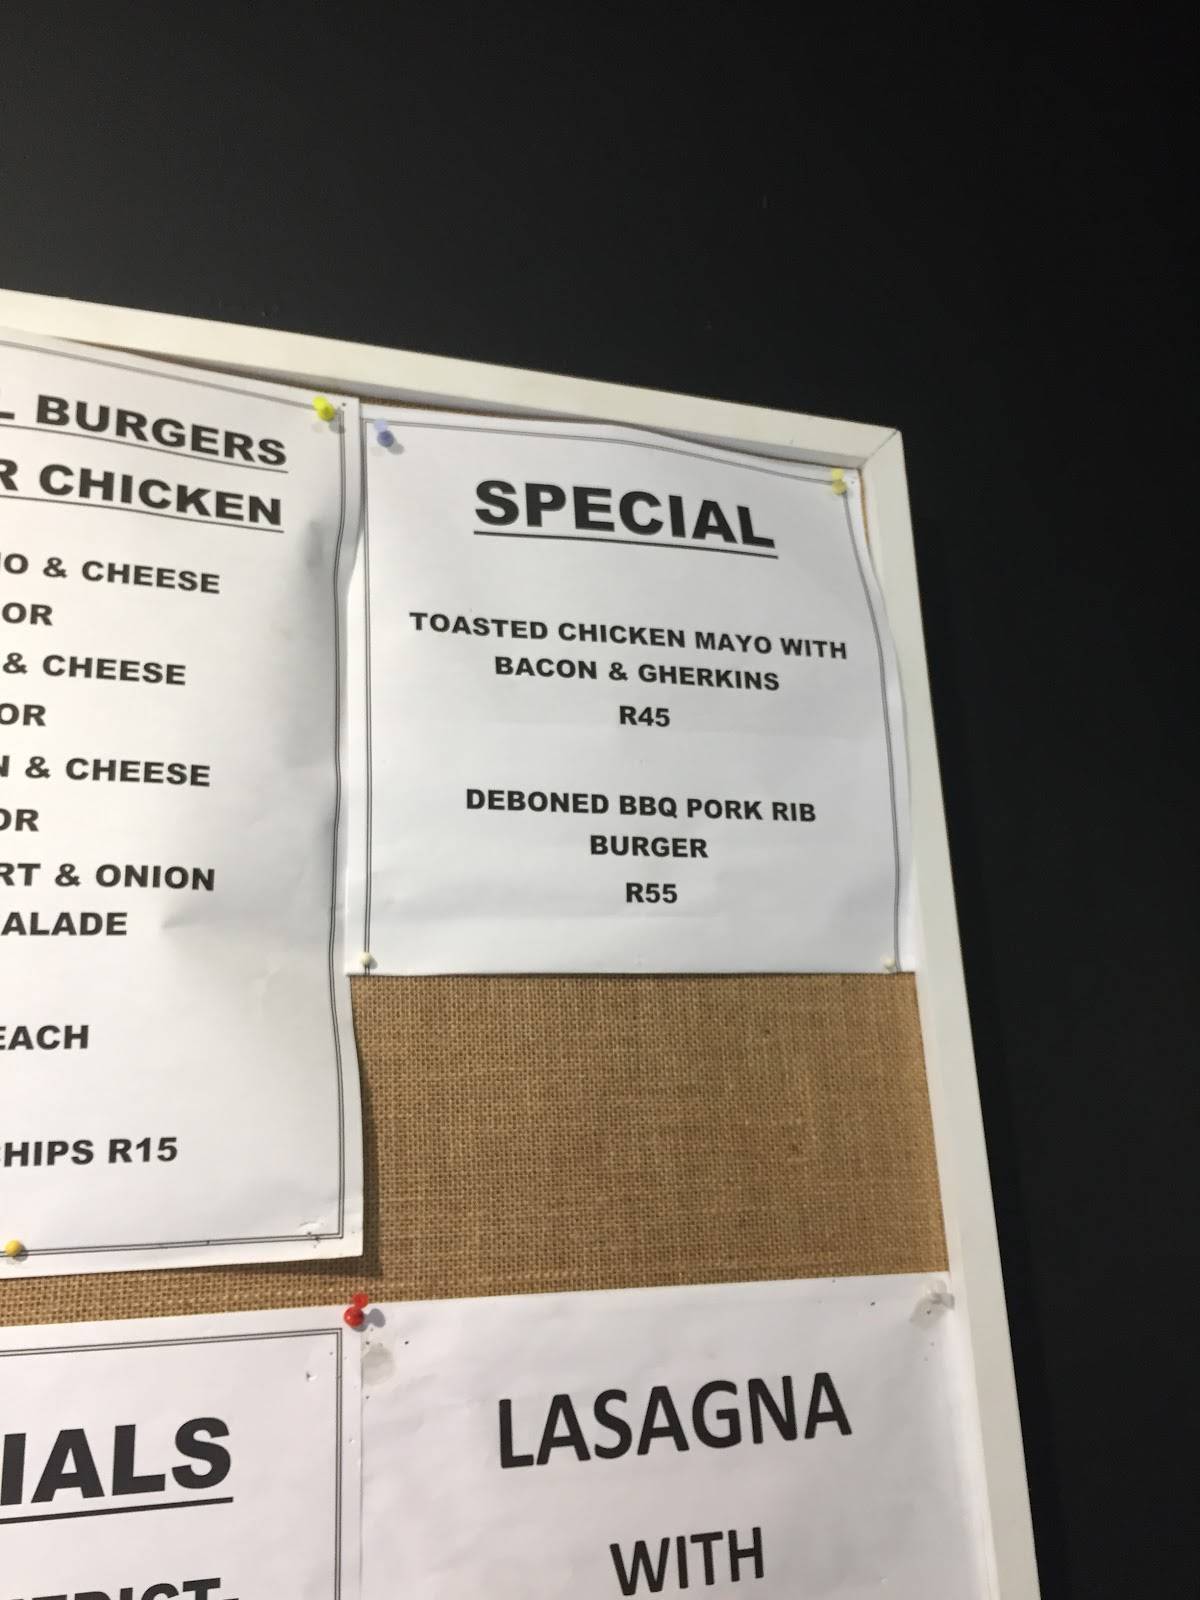 BURGERS
CHICKEN
& CHEESE
OR
& CHEESE
OR
& CHEESE
OR
& ONION
EACH
R15
SPECIAL
TOASTED CHICKEN MAYO WITH
BACON & GHERKINS
R45
DEBONED BBQ PORK RIB
BURGER
R55
LASAGNA
WITH